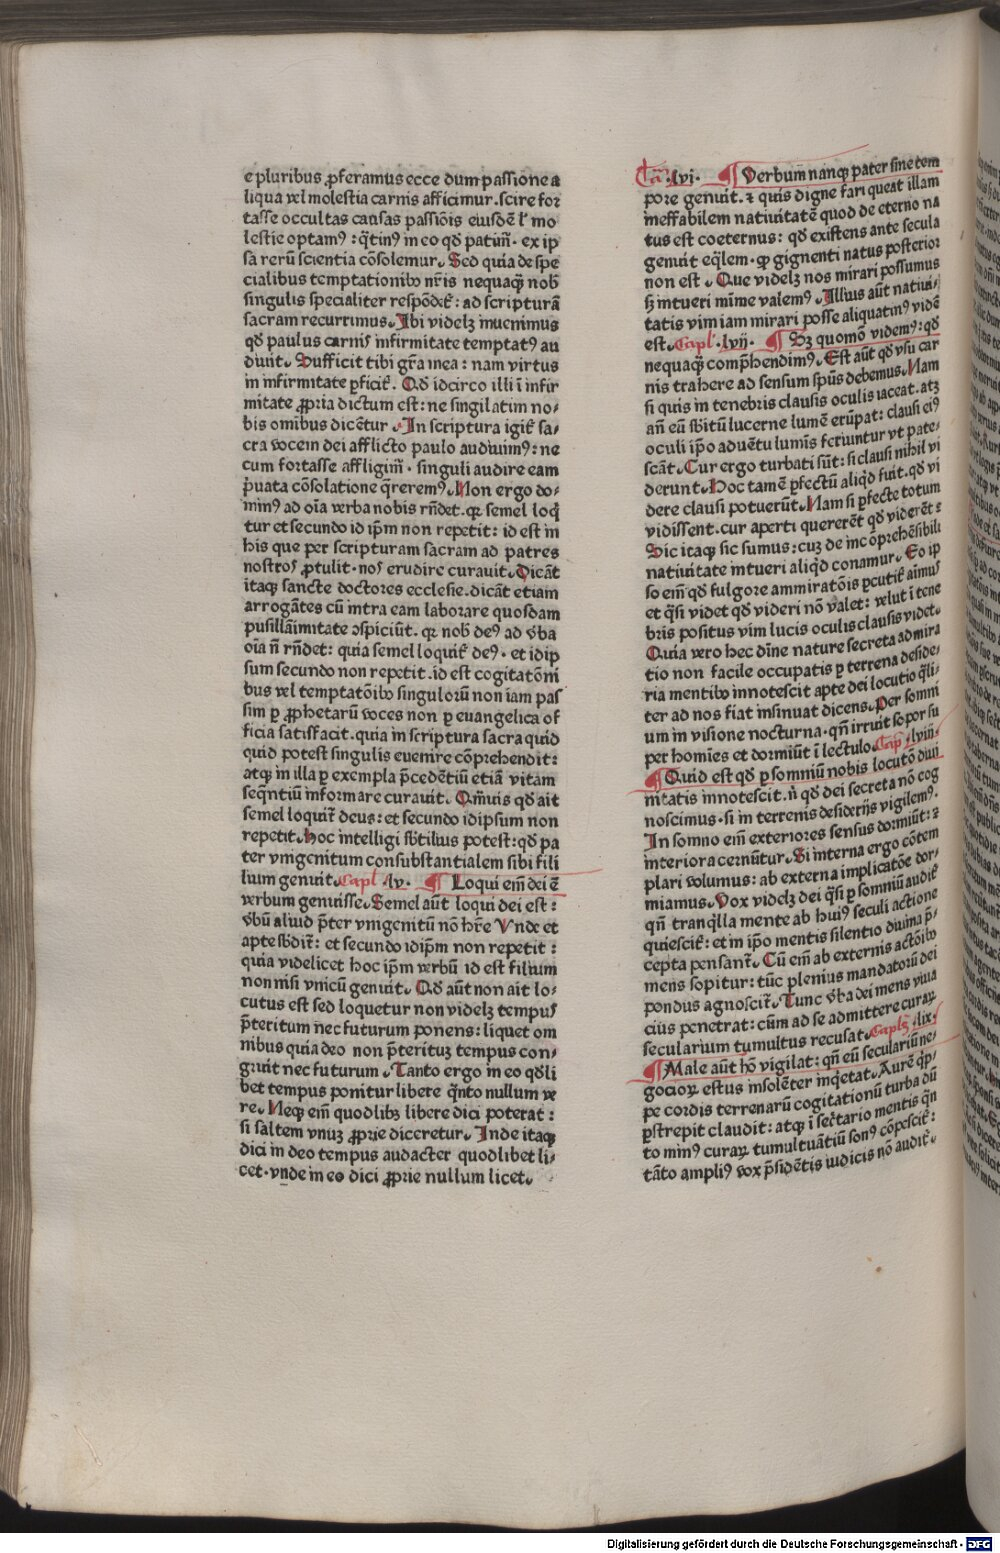 e pluribus ꝓferamus ecce dum passione a
liqua vel molestia carnis afficimur. scire for
tasse occultas causas passiōis eiusdē ł mo
lestie optamꝰ : q̄tinꝰ in eo qd̄ patim̄. ex ip
sa rerū scientia cōsolemur. Sed quia de spe
cialibus temptationibꝰ nr̄is nequaq̄ƺ nob̄
singulis specialiter respōdet̄ : ad scripturā
sacram recurrimus. Ibi videlƺ inuenimus
qd̄ paulus carnis infirmitate temptatꝰ au
diuit. Sufficit tibi gr̄a mea : nam virtus
in infirmitate ꝑficit̄. Qd̄ idcirco illi ī infir
mitate ꝓpria dictum est : ne singilatim no⸗
bis omībus dicētur. In scriptura igit̄ sa⸗
cra vocem dei afflicto paulo audiuimꝰ : ne
cum fortasse affligim̄. singuli audire eam
p̄uata cōsolatione q̄reremꝰ. Non ergo do⸗
minꝰ ad oīa verba nobis rn̄det. qꝛ semel loq̄
tur et secundo id ip̄m non repetit : id est in
his que per scripturam sacram ad patres
nostros ꝓtulit. nos erudire curauit. Dicāt
itaqƺ sancte doctores ecclesie. dicāt etiam
arrogātes cū intra eam laborare quosdam
pusillāimitate ↄspiciūt. qꝛ nob̄ deꝰ ad v̄ba
oīa n̄ rn̄det : quia semel loquit̄ deꝰ. et idip
sum secundo non repetit. id est cogitatōni
bus vel temptatōibꝰ singulorū non iam pas
sim ꝑ ꝓphetarū voces non ꝑ euangelica of
ficia satisfacit. quia in scriptura sacra quid
quid potest singulis euenire cōprehendit :
atqƺ in illa ꝑ exempla p̄cedētiū etiā vitam
seq̄ntiū informare curauit. Qm̄uis qd̄ ait
semel loquit̄ deus : et secundo idipsum non
repetit. hoc intelligi sb̄tilius potest : qd̄ pa
ter vnigenitum consubstantialem sibi fili
lium genuit. Capl̄ .lv. ¶ Loqui em̄ dei ē
verbum genuisse. Semel aūt loqui dei est :
v̄bū aliud p̄ter vnigenitū nō hr̄e Vnde et
apte sb̄dit̄ : et secundo idip̄m non repetit :
quia videlicet hoc ip̄m verbū id est filium
non nisi vnicū genuit. Qd̄ aūt non ait lo⸗
cutus est sed loquetur non videlƺ tempus
p̄teritum nec futurum ponens : liquet om
nibus quia deo non p̄terituƺ tempus con⸗
gruit nec futurum. Tanto ergo in eo qd̄li
bet tempus ponitur libere q̄nto nullum ve
re. Neqƺ em̄ quodlibƺ libere dici poterat :
si saltem vnuƺ ꝓprie diceretur. Inde itaqƺ
dici in deo tempus audacter quodlibet li⸗
cet. vnde in eo dici ꝓprie nullum licet.
Ca. lvj. ¶ Verbum nanqƺ pater sine tem
pore genuit. ⁊ quis digne fari queat illam
ineffabilem natiuitatē quod de eterno na
tus est coeternus : qd̄ existens ante secula
genuit eq̄lem. qꝙ gignenti natus posterior
non est. Que videlƺ nos mirari possumus
sƺ intueri mīme valemꝰ. Illius aūt natiui⸗
tatis vim iam mirari posse aliquatinꝰ vidē
est. Capl̄ .lvij. ¶ Sƺ quomō videmꝰ : qd̄
nequaq̄ƺ comp̄hendimꝰ. Est aūt qd̄ vsu car
nis trahere ad sensum sp̄us debemus. Nam
si quis in tenebris clausis oculis iaceat. atqƺ
an̄ eū sb̄itū lucerne lumē erūpat : clausi eiꝰ
oculi ip̄o aduētu lumīs feriuntur vt pate⸗
scāt. Cur ergo turbati sūt : si clausi nihil vi
derunt. Hoc tamē ꝑfectū aliqd̄ fuit. qd̄ vi
dere clausi potuerūt. Nam si ꝑfecte totum
vidissent. cur aperti quererēt qd̄ viderēt :
Sic itaqƺ sic sumus : cuƺ de incōprehēsibili
natiuitate intueri aliqd̄ conamur. Eo ip
so em̄ qd̄ fulgore ammiratōis ꝑcutit̄ aīmus
et q̄si videt qd̄ videri nō valet : velut ī tene
bris positus vim lucis oculis clausis videt.
Quia vero hec dīne nature secreta admira
tio non facile occupatis ꝑ terrena deside⸗
ria mentibꝰ innotescit apte dei locutio q̄li⸗
ter ad nos fiat insinuat dicens. Per somni
um in visione nocturna. qn̄ irruit sopor su
per homīes et dormiūt ī lectulo. Cap̄ lviij.
¶ Quid est qd̄ ꝑ somniū nobis locutō diui
nitatis innotescit. n̄ qd̄ dei secreta nō cog
noscimus. si in terrenis desiderijs vigilemꝰ.
In somno em̄ exteriores sensus dormiūt : ⁊
interiora cernūtur. Si interna ergo cōtem
plari volumus : ab externa implicatōe dor⸗
miamus. Vox videlƺ dei q̄si ꝑ somniū audit̄
qn̄ tranq̄lla mente ab huiꝰ seculi actione
quiescit̄ : et in ip̄o mentis silentio diuina p̄⸗
cepta pensant̄. Cū em̄ ab externis actōibꝰ
mens sopitur : tūc plenius mandatorū dei
pondus agnoscit̄. Tunc v̄ba dei mens viua
cius penetrat : cūm ad se admittere curaꝝ
secularium tumultus recusat. Caplƺ .lix.
¶ Male aūt hō vigilat : qn̄ eū seculariū ne⸗
gocioꝝ estus insolēter inq̄etat. Aurē q̄p⸗
pe cordis terrenarū cogitationū turba dū
ꝑstrepit claudit : atqƺ ī secr̄tario mentis q̄n
to minꝰ curaꝝ tumultuātiū sonꝰ cōpescit̄ :
tāto ampliꝰ vox p̄sidētis iudicis nō audit̄.
Digitalisierung gefördert durch die Deutsche Forschungsgemeinschaft - DFG